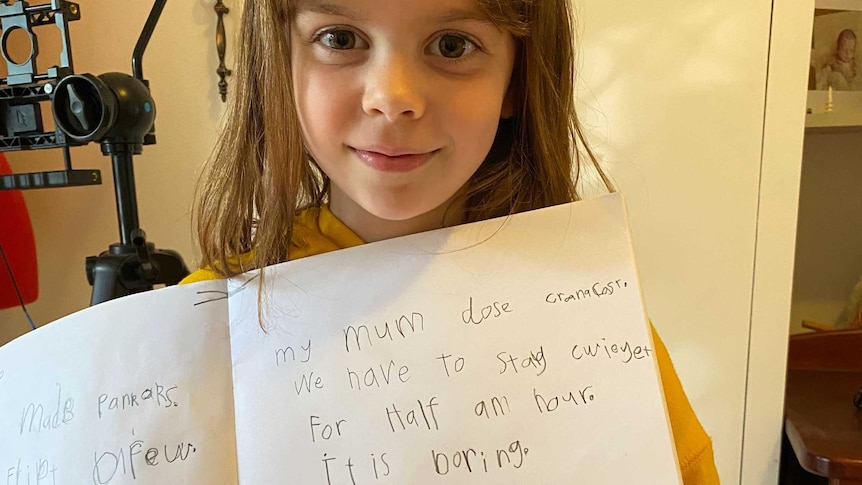 madB Pankaks.
FliPt
my mum dose cranafasr.
We have to Stay cwieyet
For Half an hour.
it is boring.